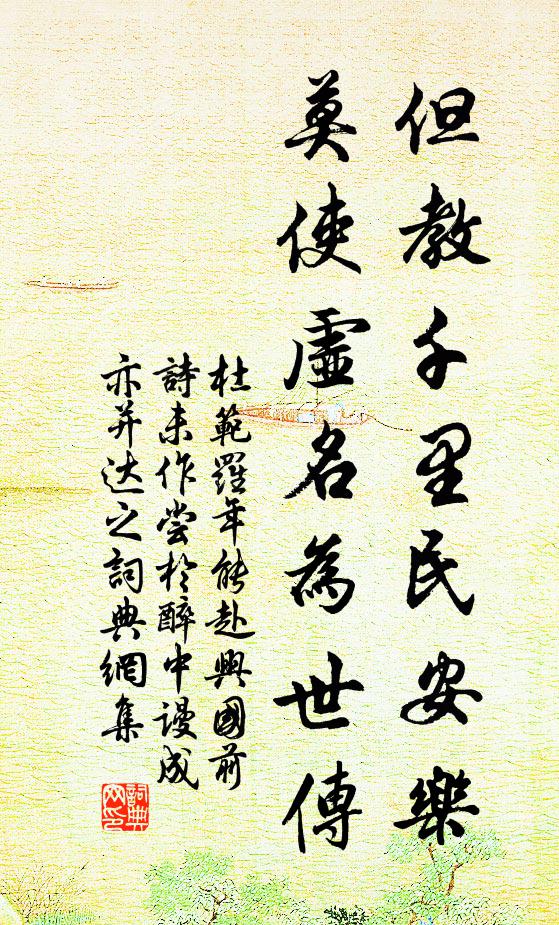 但教千里民安樂
莫使虛名為世傳
杜範羅年能赴興國前
詩未作嘗於醉中謾成
亦并达之詞典網集
詞典
网印